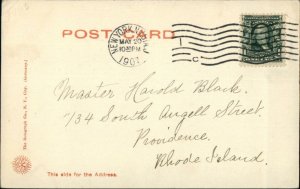 POST CARD
NEW YORK, N.Y.
MAY 20
1907
C
Master Harold Black.
734 South Angell Street.
Providence.
Rhode Island.
This side for the Address.
The Rotograph Co., N. Y. City. (Germany.)